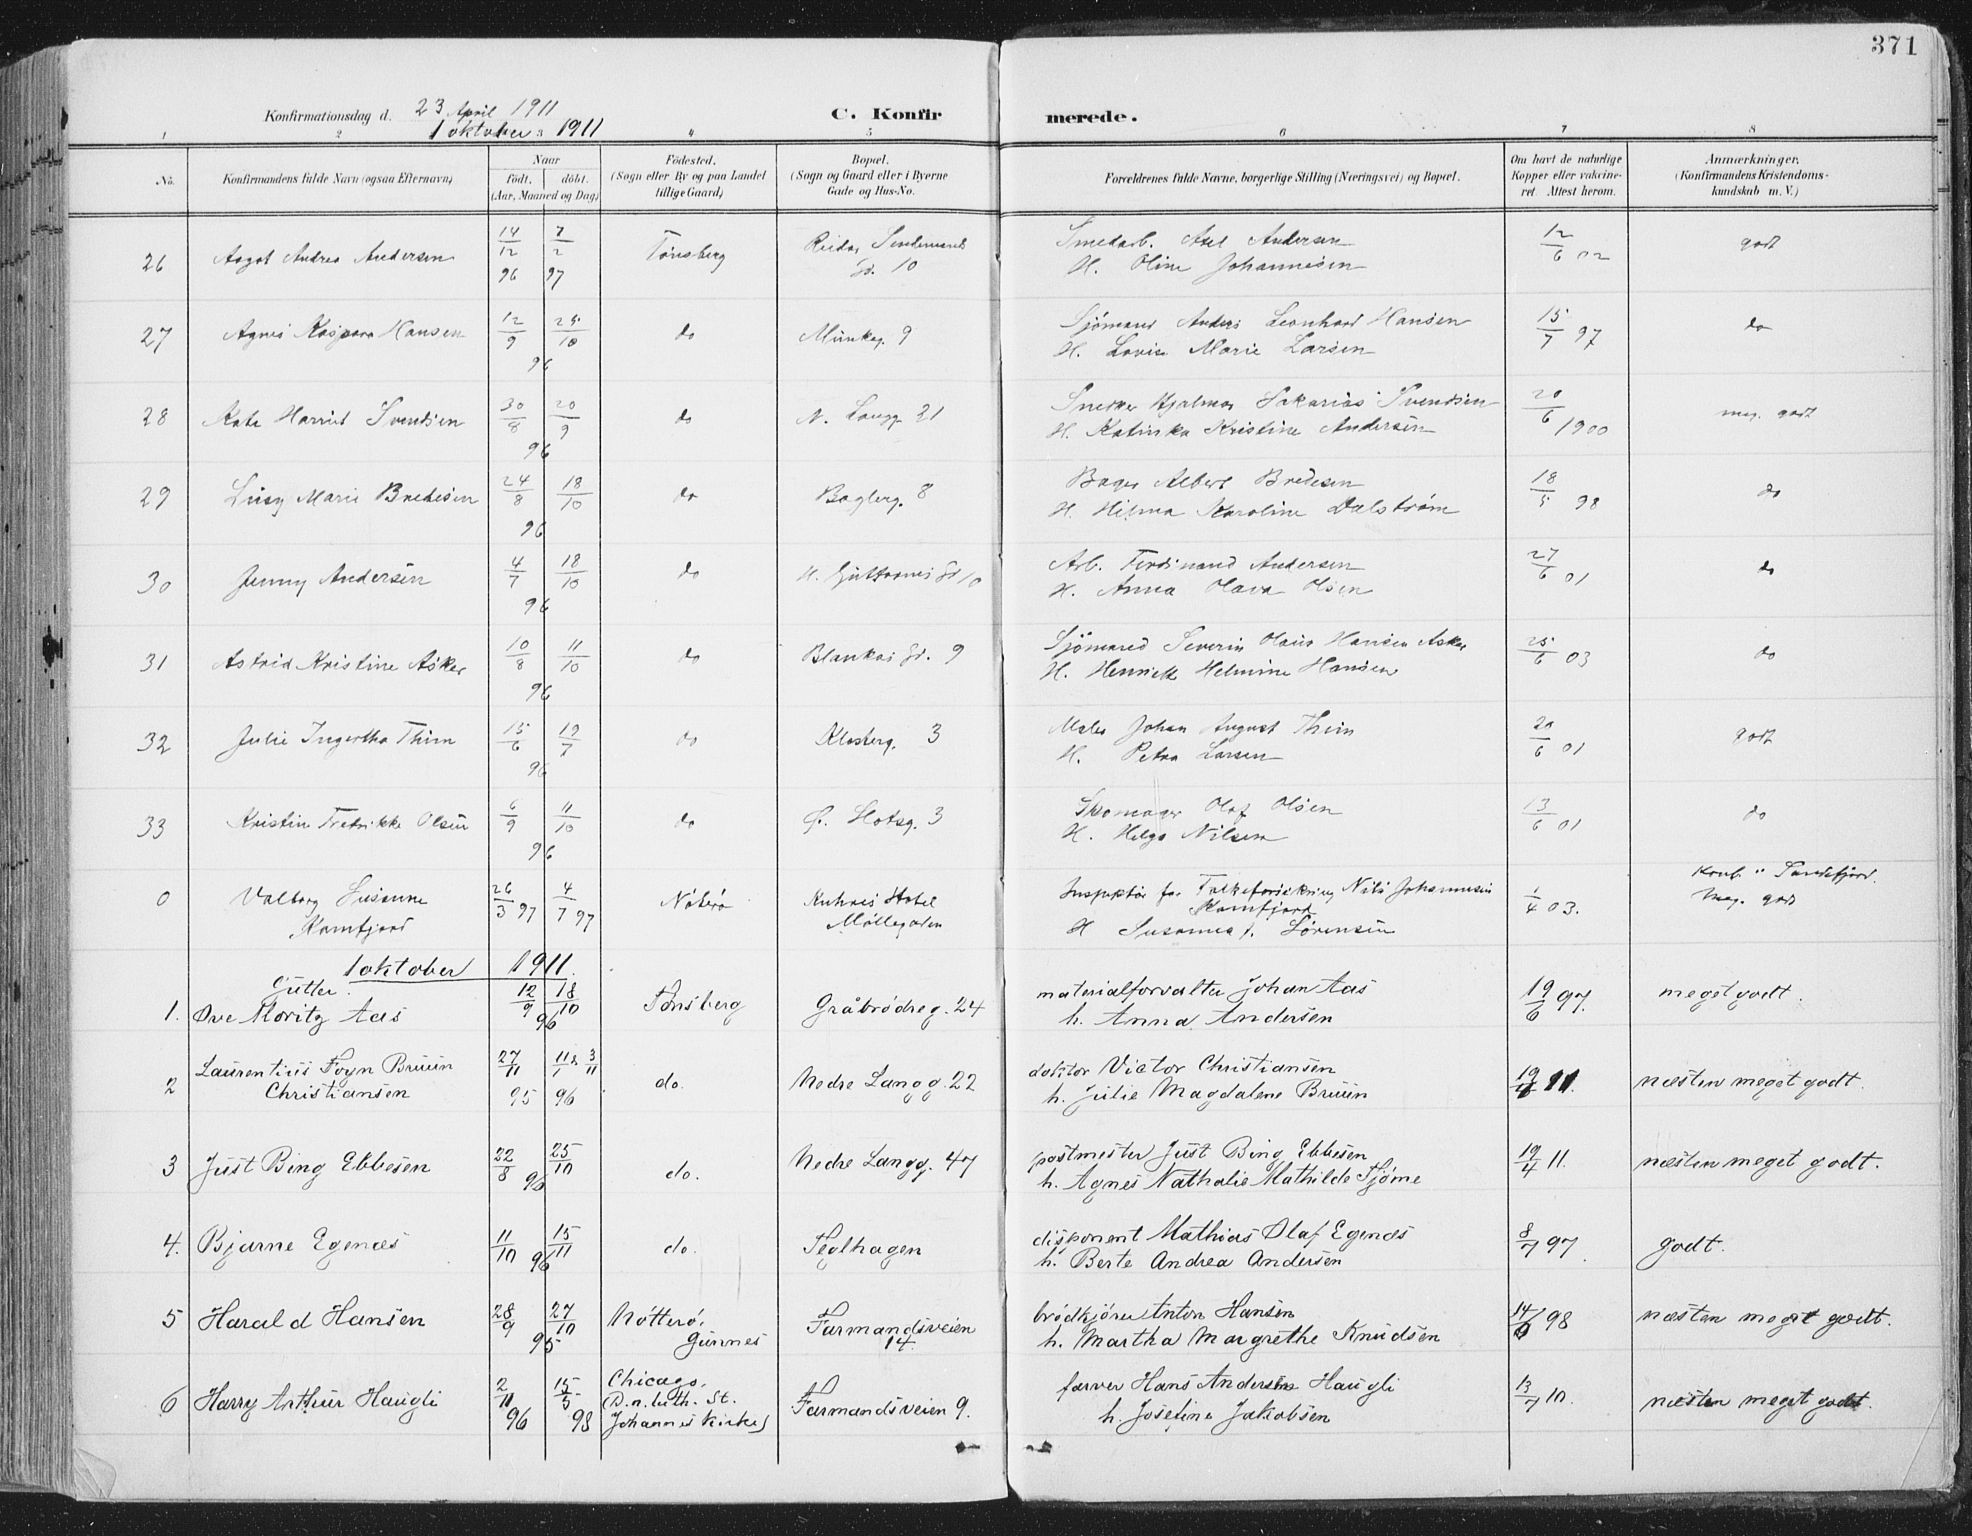 371
Konfirmationsdag d. 23 April 1911
1 oktober 1911
C. Konfirmerede.
1 2 3 4 5 6 7 8
No.
Konfirmandens fulde Navn (ogsaa Efternavn)
Naar
födt. döbt.
(Aar, Maaned og Dag)
Födested.
(Sogn eller By og paa Landet
tillige Gaard)
Bopæl.
(Sogn og Gaard eller i Byerne
Gade og Hus-No.
Forældrenes fulde Navne, borgerlige Stilling (Næringsvei) og Bopæl.
Om havt de naturlige
Kopper eller vakcine-
ret. Attest herom.
Anmærkninger.
(Konfirmandens Kristendoms-
kundskab m. V.)
26 Aagot Andrea Andersen 14/12 96 7/2 97 Tönsberg Reidar Sendemands gd. 10
Smedarb. Axel Andersen 12/6 02 godt
H. Oline Johannesen
27 Agnes Kaspara Hansen 12/9 25/10 96 do Munkeg. 9
Sjömand Anders Leonhard Hansen 15/7 97 do
H. Lovise Marie Larsen
28 Kate Harriet Svendsen 30/8 20/9 96 do N. Langg. 31
Snekker Hjalmar Sakarias Svendsen 20/6 1900 meg. godt
H. Katinka Kristine Andersen
29 Lüsy Marie Bredesen 24/8 18/10 96 do Baglerg. 8
Bager Albert Bredesen 18/5 98 do
H. Hilma Karoline Dalström
30 Jenny Andersen 4/7 18/10 96 do H. Guttormsgd 10
Arb. Ferdinand Andersen 27/6 01 do
H. Anna Olava Olsen
31 Astrid Kristine Asker 10/8 11/10 96 do Blankas gd. 9
Sjömand Severin Olaus Hansen Asker 25/6 03 do
H. Henriette Helmine Hansen
32 Julie Ingertha Thim 15/6 19/7 96 do Klosterg. 3
Maler Johan August Thim 20/6 01 godt
H. Petra Larsen
33 Kristine Fredrikke Olsen 6/9 11/10 96 do Ø. Slotsg. 3
Skomager Olaf Olsen 13/6 01 do
H. Helga Nilsen
0 Valborg Susanne 26/3 97 4/7 97 Nöterö Hotel
Kamfjord Möllegaden
Inspektör for Folkeforsikring Nils Johannesen 1/4 03. Sandefjord.
Kamfjord meg. godt
H Susanna f. Sörensen
1 oktober 1911.
Gutter.
1. Ove Moritz Aas 12/9 18/10 96 Tönsberg Gråbrödreg. 24
materialforvalter Johan Aas 19/6 97. meget godt.
h. Anna Andersen
2 Laurentius Foyn Bruun 27/11 95 11/1 & 3/11 96 do. Nedre Langg. 22
Christiansen
doktor Victor Christiansen 11. næsten meget godt.
h. Julie Magdalene Bruun
3 Just Bing Ebbesen 22/8 25/10 96 do. Nedre Langg. 47
postmester Just Bing Ebbesen 19/4 11. næsten meget godt.
h. Agnes Nathalie Mathilde Tjöme
4. Bjarne Egenæs 11/10 15/11 96 do. Teglhagen
disponent Mathias Olaf Egenæs 8/7 97. godt.
h. Berte Andrea Andersen
5 Harald Hansen 28/9 27/10 95 Nötterö, Farmandsveien
Gunnes 14.
brödkjörer Anton Hansen 14/6 98 næsten meget godt.
h. Martha Margrethe Knudsen
6 Harry Arthur Haugli 2/11 96 15/5 98 Chicago. Farmandsveien 9.
D. n. luth. St.
Johannes kirke)
farver Hans Andersen Haugli 13/7 10. næsten meget godt.
h. Josefine Jakobsen